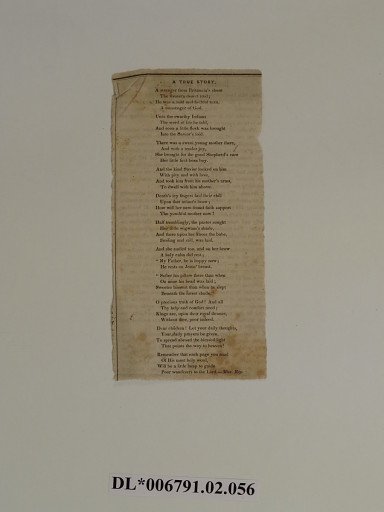 A TRUE STORY.
A stranger from Britannia's shore
The Western forest trod;
He was a bold and faithful man,
A messenger of God.
Unto the swarthy Indians
The word of life he told,
And soon a little flock was brought
Into the Savior's fold.
There was a sweet young mother there,
And with a tender joy,
She brought for the good Shepherd's care
Her little first-born boy.
And the kind Savior looked on him
With pity and with love,
And took him from his mother's arms,
To dwell with him above.
Death's icy fingers laid their chill
Upon that infant's brow;
How will her new found faith support
The youthful mother now?
Half tremblingly, the pastor sought
Her little wigwam's shade,
And there upon her the babe,
Smiling and cold, was laid.
And she smiled too, and on her brow
A holy calm did rest;
"My Father, he is happy now;
He rests on Jesus' breast.
"Softer his pillow there than when
On mine his head was laid;
Sweeter his rest than when he slept
Beneath the forest shade."
O precious truth of God! And all
Thy help and comfort need;
Kings are, upon their royal thrones,
Without thee, poor indeed.
Dear children! Let your daily thoughts,
Your daily prayers be given,
To spread abroad the blessed light
That points the way to heaven!
Remember that each page you send
Of His most holy word,
Will be a little lamp to guide
Poor wanderers to the Lord.—
DL*006791.02.056